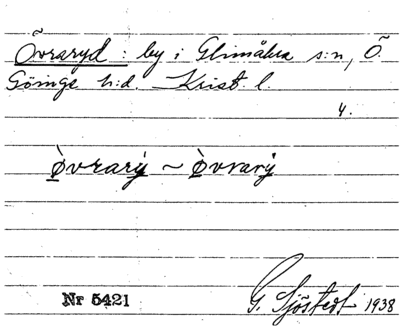 Övraryd : by i Glimåkra s:n, Ö.
Göinge h:d. Krist. l.
4.
òvrarý ~ òvrarý
Nr 5421
G. Sjöstedt 1938